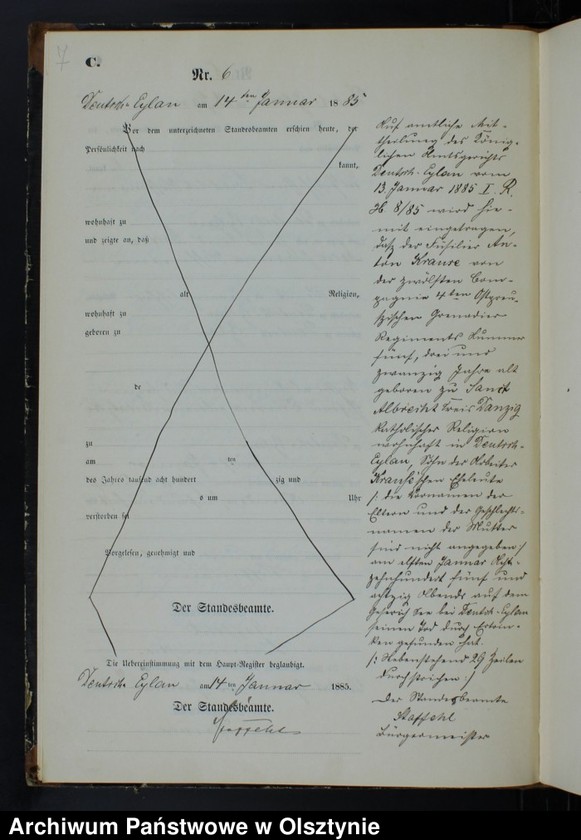 7
C.
Nr. 6
Deutsch-Eylan am 14ten Januar 1885
Vor dem unterzeichneten Standesbeamten erschien heute, der
Persönlichkeit nach
kannt,
wohnhaft zu
und zeigte an, daß
alt Religion,
wohnhaft zu
geboren zu
de
zu
am ten
des Jahres tausend acht hundert zig und
s um Uhr
verstorben sei
Vorgelesen, genehmigt und
Der Standesbeamte.
Die Uebereinstimmung mit dem Haupt-Register beglaubigt.
Deutsch Eylan am 14ten Januar 1885.
Der Standesbeamte.
Auf amtliche Mit-
theilung des König-
lichen Amtsgerichts
Deutsch-Eylau vom
13. Januar 1885 I. R.
H. 8/85 wird hie-
mit eingetragen,
daß der Füsilier An-
ton Krause von
der zwölften Com-
pagnie 4ten Ostpreu-
ßischen Grenadier
Regiments Nummer
fünf, drei und
zwanzig Jahre alt
geboren zu Sanct
Albrecht Kreis Danzig
katholischer Religion
wohnhaft in Deutsch-
Eylau, Sohn der Arbeiter
Krause'schen Eheleute
/: die Vornamen der
Eltern und der Geschlechts-
namen der Mutter
sind nicht angegeben :/
am elften Januar Acht-
zehnhundert fünf und
achtzig Abends auf dem
Geserich See bei Deutsch-Eylau
seinen Tod durch Ertrin-
ken gefunden hat.
/: Nebenstehend 29 Zeilen
durchstrichen :/
Der Standesbeamte
Staffehl
Bürgermeister
Archiwum Państwowe w Olsztynie